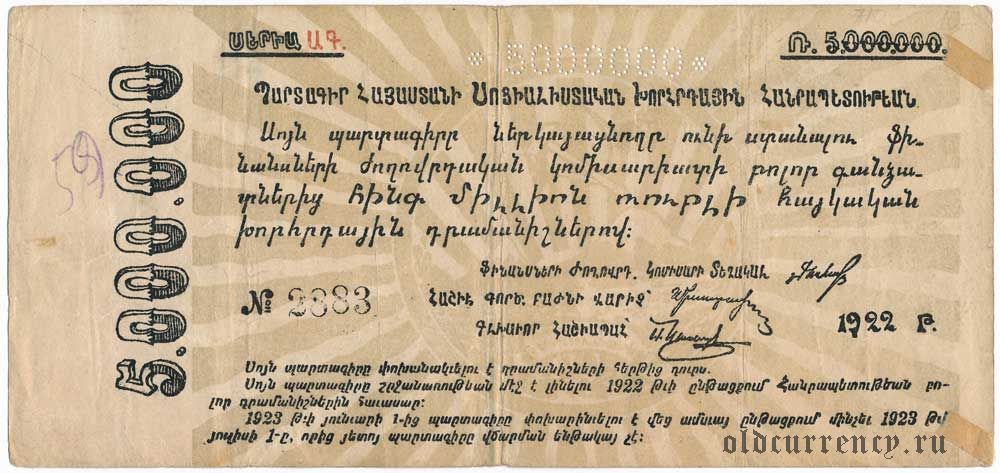 ՍԵՐԻԱ ԱԳ.
*5000000*
Ռ. 5.000.000.
5.000.000
ՊԱՐՏԱԳԻՐ ՀԱՅԱՍՏԱՆԻ ՍՈՑԻԱԼԻՍՏԱԿԱՆ ԽՈՐՀՐԴԱՅԻՆ ՀԱՆՐԱՊԵՏՈՒԹԵԱՆ.
Սոյն պարտագիրը ներկայացնողը ունի ստանալու Ֆի-
նանսների Ժողովրդական կոմիսարիատի բոլոր գանձա-
տներից ՀԻՆԳ ՄԻԼԼԻՈՆ ռուբլի հայկական
խորհրդային դրամանիշներով:
ՖԻՆԱՆՍՆԵՐԻ ԺՈՂՈՎՐԴ. ԿՈՄԻՍԱՐԻ ՏԵՂԱԿԱԼ
№ 2883
ՀԱՇԻՒ ԳՈՐԾ. ԲԱԺՆԻ ՎԱՐԻՉ՝
ԳԼԽԱՒՈՐ ՀԱՇԻԱՊԱՀ՝
1922 Թ.
Սոյն պարտագիրը փոխանակւելու է դրամանիշների հերթից դուրս.
Սոյն պարտագիրը շրջանառութեան մէջ է լինելու 1922 թւի ընթացքում Հանրապետութեան բո-
լոր դրամանիշներին հաւասար:
1923 թ-ի յունւարի 1-ից պարտագիրը փոխարինւելու է վեց ամսւայ ընթացքում մինչեւ 1923 թւի
յուլիսի 1-ը, որից յետոյ պարտագիրը վճարման ենթակայ չէ:
oldcurrency.ru